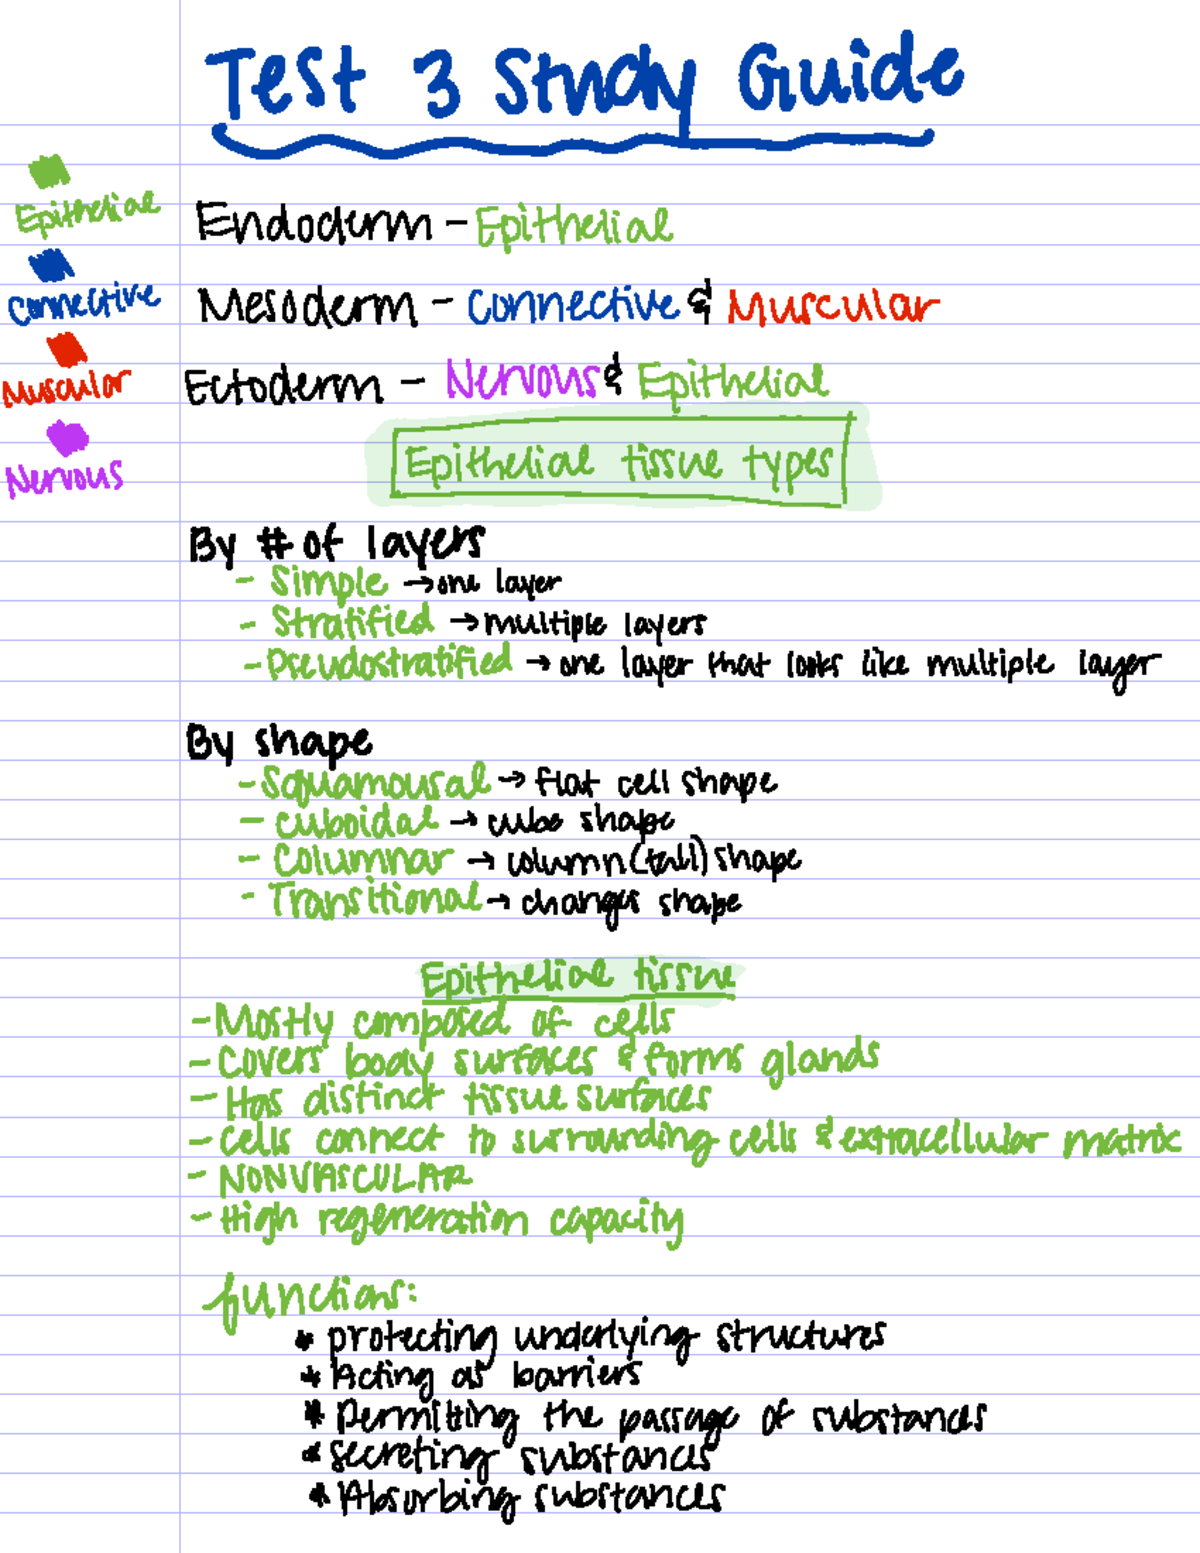 Test 3 Study Guide
Epithelial
Connective
Muscular
Nervous
Endoderm - Epithelial
Mesoderm - Connective & Muscular
Ectoderm - Nervous & Epithelial
Epithelial tissue types
By # of layers
- Simple → one layer
- Stratified → multiple layers
- Pseudostratified → one layer that looks like multiple layer
By shape
- Squamousal → flat cell shape
- cuboidal → cube shape
- Columnar → column (tall) shape
- Transitional → changes shape
Epithelial tissue
- Mostly composed of cells
- Covers body surfaces & forms glands
- Has distinct tissue surfaces
- Cells connect to surrounding cells & extracellular matrix
- NONVASCULAR
- High regeneration capacity
functions:
* protecting underlying structures
* Acting as barriers
* Permitting the passage of substances
* secreting substances
* Absorbing substances